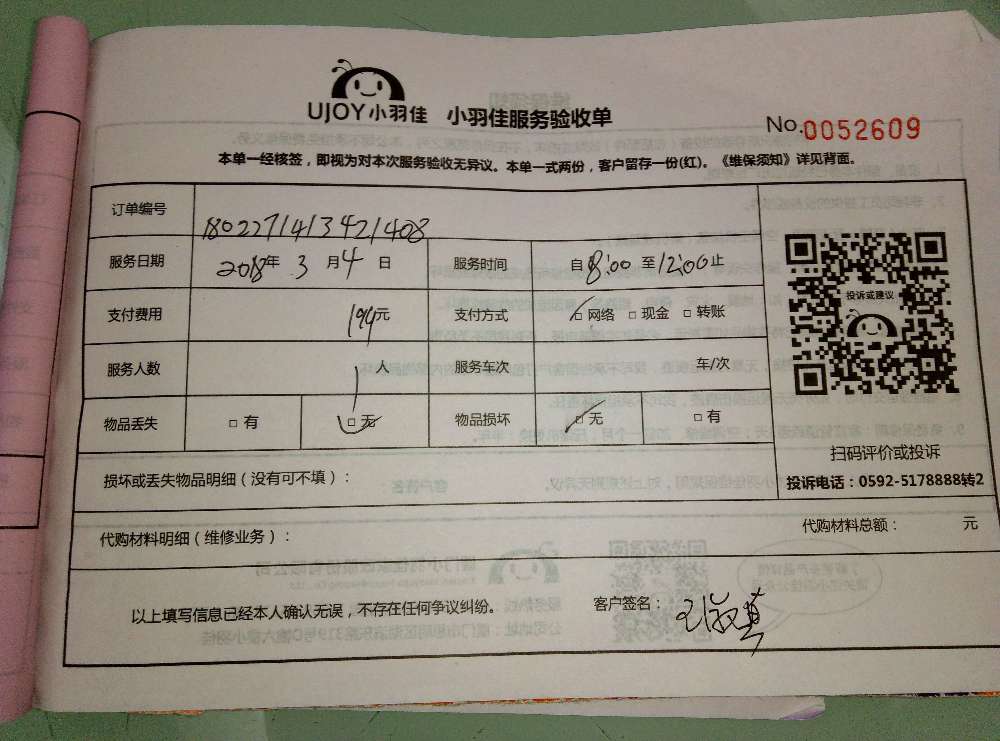 UJOY小羽佳 小羽佳服务验收单
No.0052609
本单一经核签，即视为对本次服务验收无异议。本单一式两份，客户留存一份(红)。《维保须知》详见背面。
订单编号 1802271413421408
服务日期 2018年 3 月 4 日 服务时间 自 8:00 至 12:00 止
支付费用 199元 支付方式 □ 网络 □ 现金 □ 转账
服务人数 1 人 服务车次 车/次
物品丢失 □ 有 □ 无 物品损坏 □ 无 □ 有
投诉或建议
扫码评价或投诉
投诉电话：0592-5178888转2
损坏或丢失物品明细（没有可不填）：
代购材料明细（维修业务）： 代购材料总额： 元
以上填写信息已经本人确认无误，不存在任何争议纠纷。 客户签名：